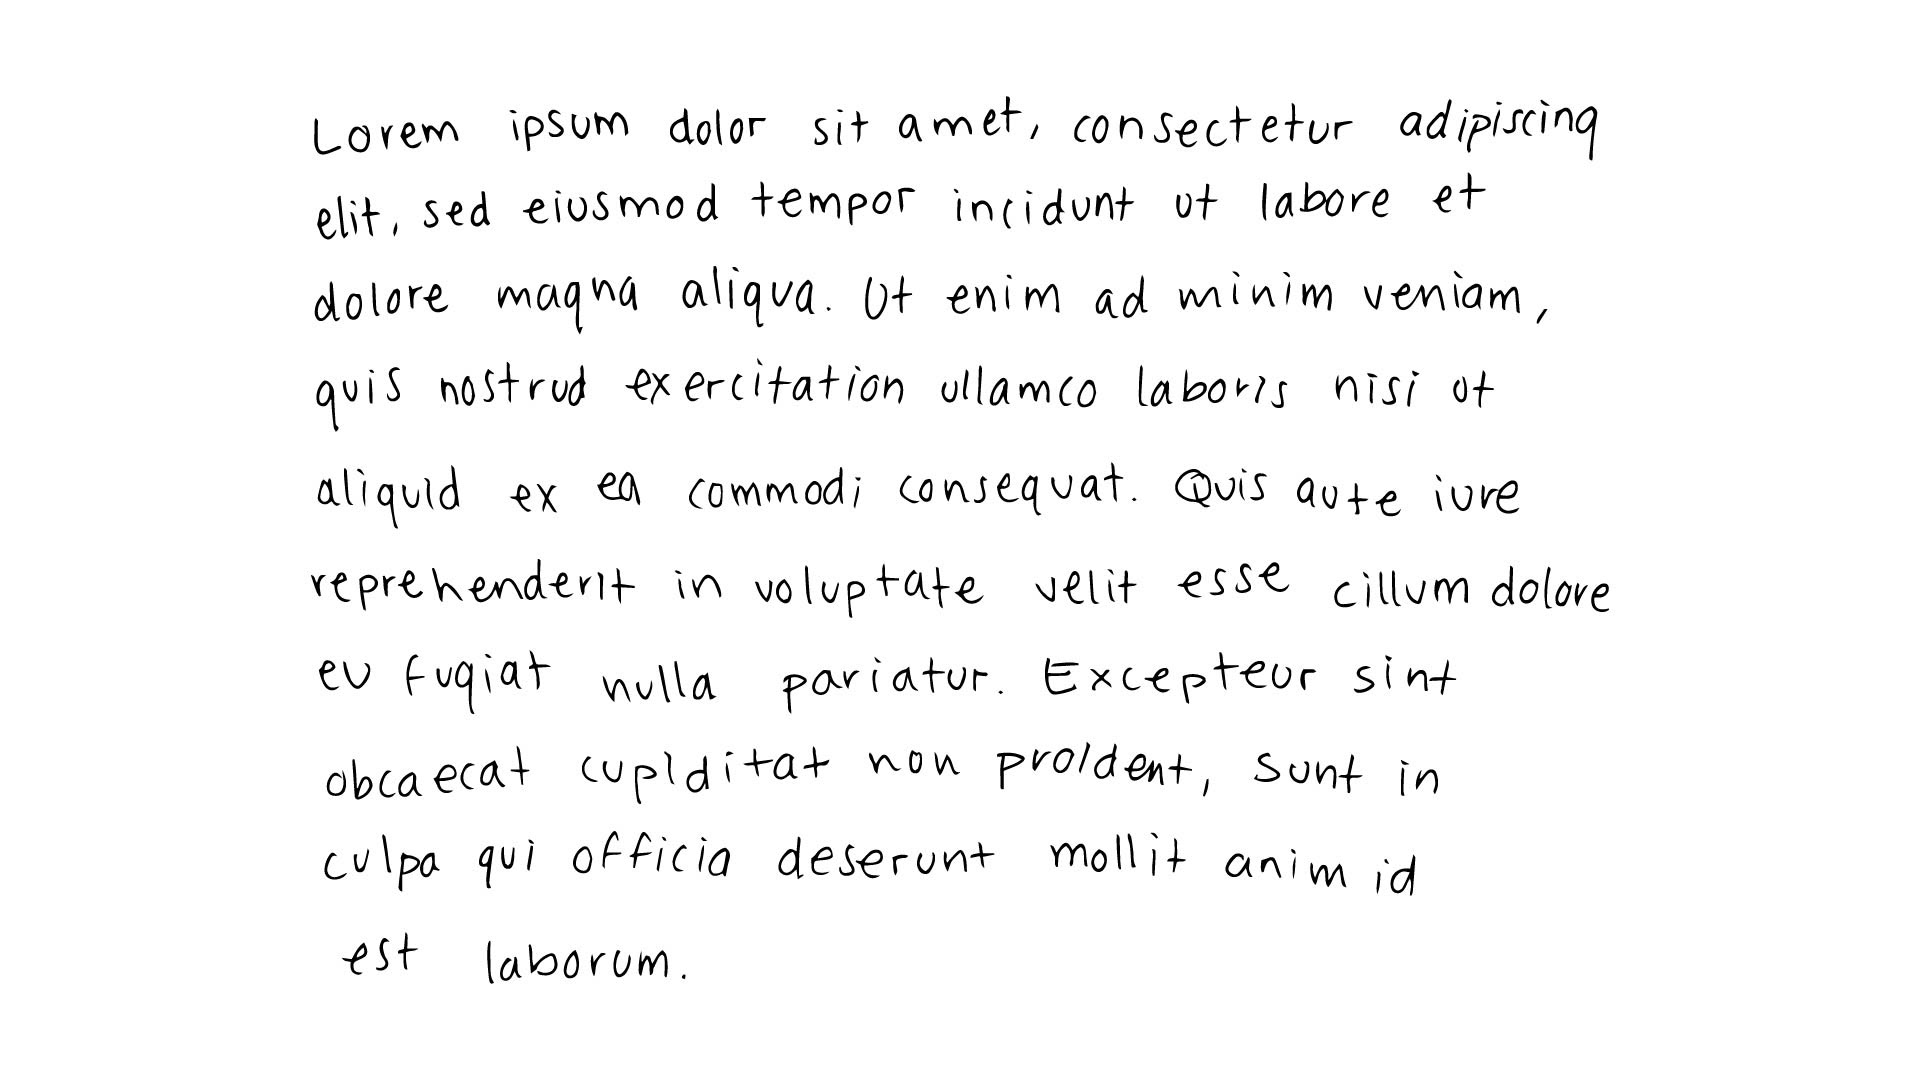 Lorem ipsum dolor sit amet, consectetur adipiscing
elit, sed eiusmod tempor incidunt ut labore et
dolore magna aliqua. Ut enim ad minim veniam,
quis nostrud exercitation ullamco laboris nisi ut
aliquid ex ea commodi consequat. Quis aute iure
reprehenderit in voluptate velit esse cillum dolore
eu fugiat nulla pariatur. Excepteur sint
obcaecat cupiditat non proident, sunt in
culpa qui officia deserunt mollit anim id
est laborum.